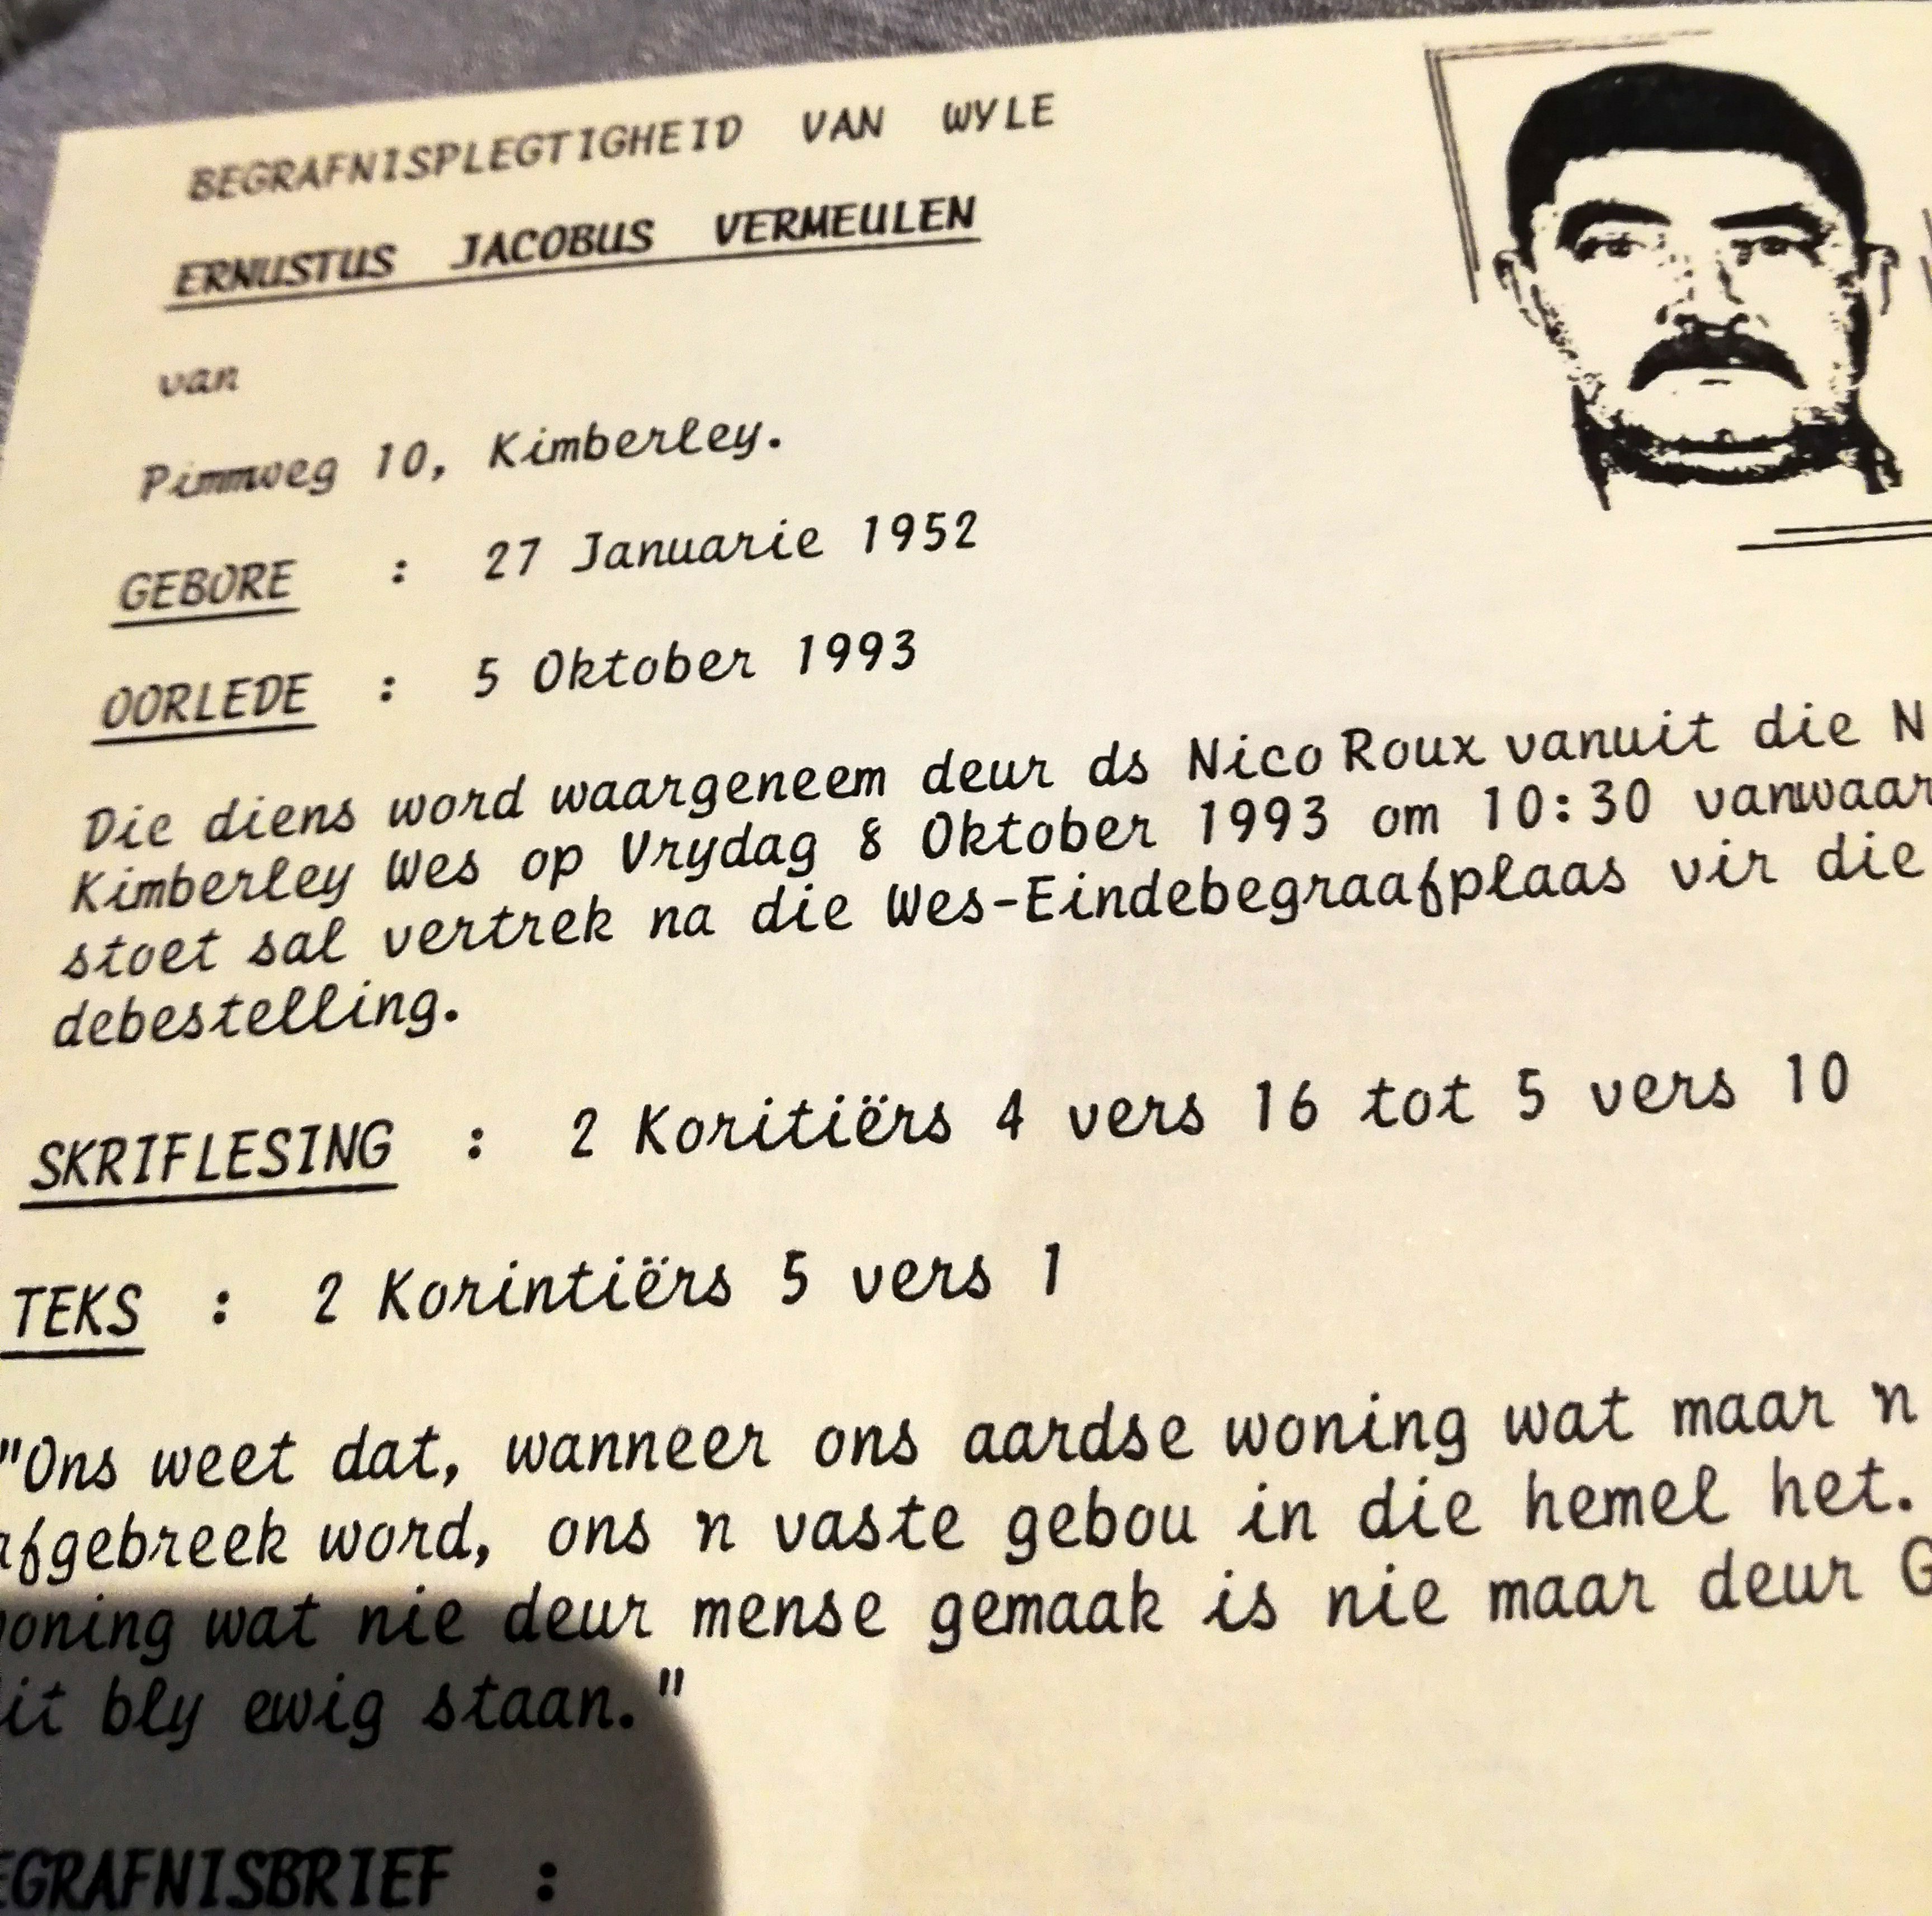 BEGRAFNISPLEGTIGHEID VAN WYLE
ERNUSTUS JACOBUS VERMEULEN
van
Pimmweg 10, Kimberley.
GEBORE : 27 Januarie 1952
OORLEDE : 5 Oktober 1993
Die diens word waargeneem deur ds Nico Roux vanuit die N
Kimberley Wes op Vrydag 8 Oktober 1993 om 10:30 vanwaar
stoet sal vertrek na die Wes-Eindebegraafplaas vir die
debestelling.
SKRIFLESING : 2 Koritiërs 4 vers 16 tot 5 vers 10
TEKS : 2 Korintiërs 5 vers 1
"Ons weet dat, wanneer ons aardse woning wat maar 'n
afgebreek word, ons 'n vaste gebou in die hemel het.
woning wat nie deur mense gemaak is nie maar deur G
dit bly ewig staan."
EGRAFNISBRIEF :